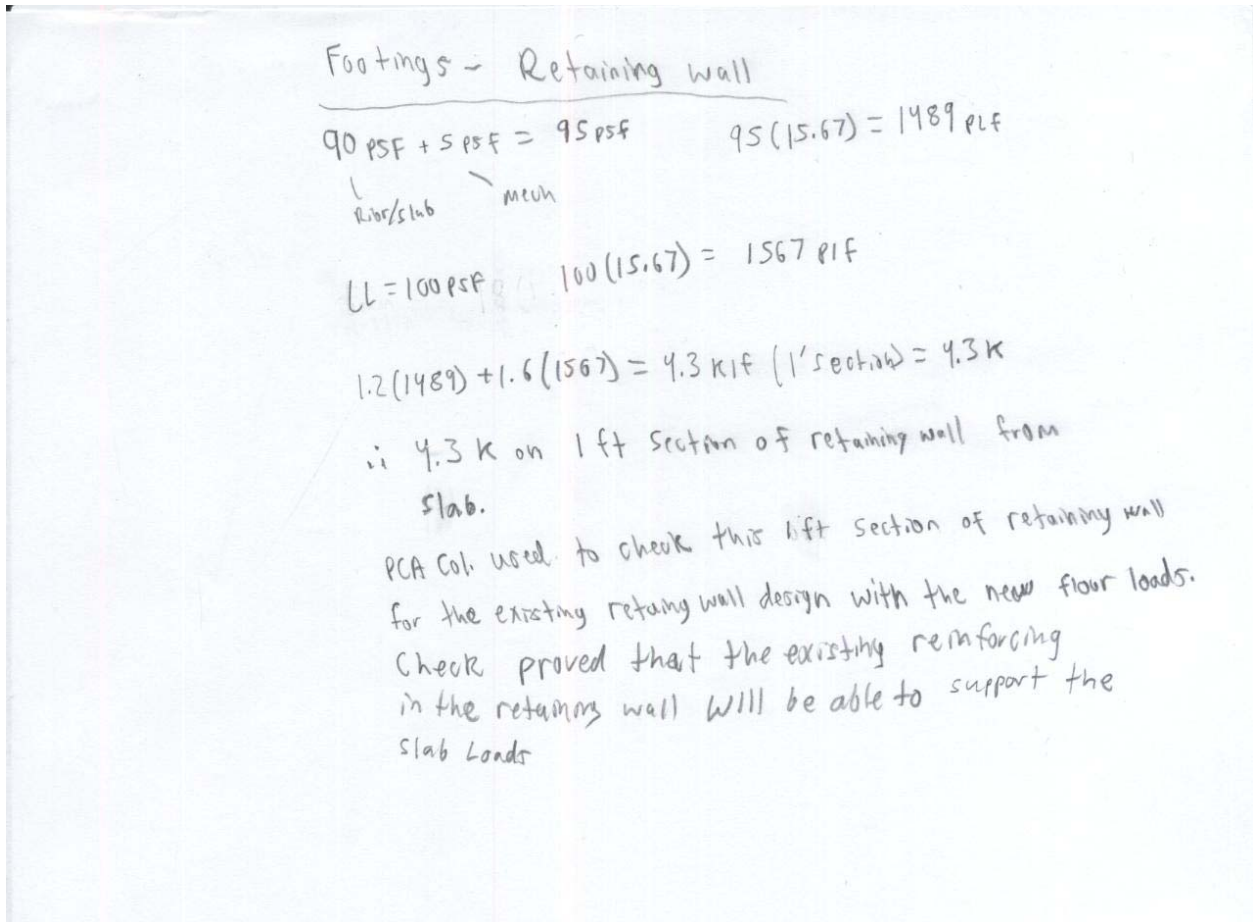 Footings - Retaining wall
90 PSF + 5 psf = 95 psf 95(15.67) = 1489 PLF
Ribs/slab mech
LL = 100 PSF 100(15.67) = 1567 plf
1.2(1489) + 1.6(1567) = 4.3 klf (1' section) = 4.3 K
∴ 4.3 K on 1 ft section of retaining wall from
slab.
PCA Col. used to check this 1 ft section of retaining wall
for the existing retaing wall design with the new floor loads.
Check proved that the existing reinforcing
in the retaining wall will be able to support the
slab Loads